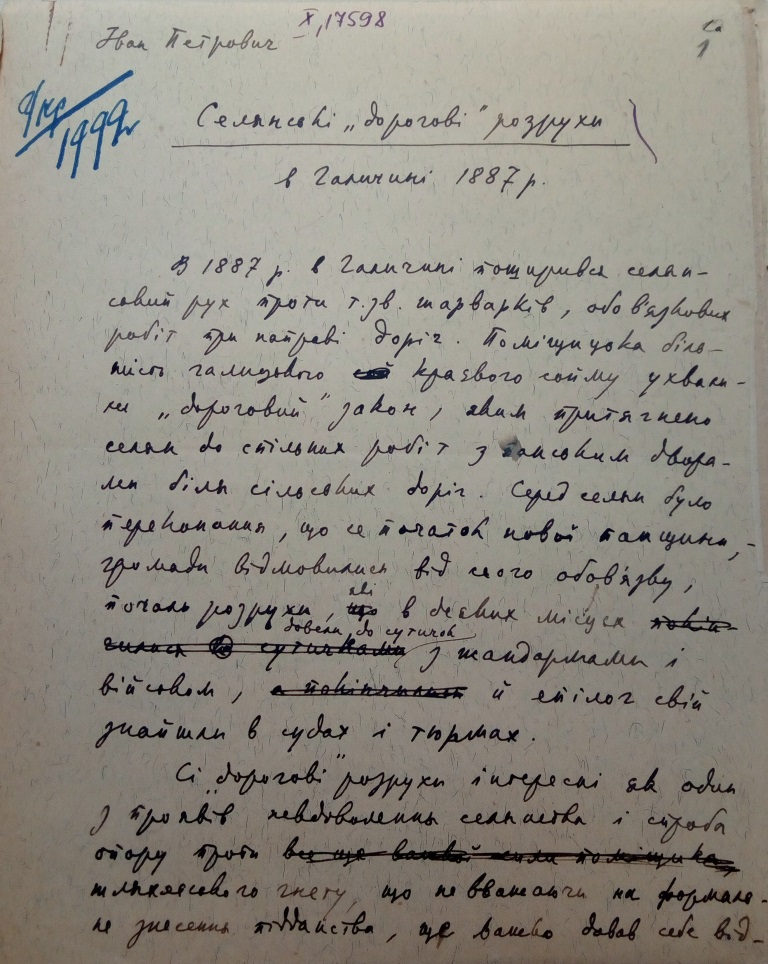 X, 17598
Іван Петрович
1
1999
Селянські „дорогові" розрухи
в Галичині 1887 р.
В 1887 р. в Галичині поширився селян-
ський рух проти т.зв. шарварків, обов'язкових
робіт при направі доріг. Поміщицька біль-
шість галицького краєвого сойму ухвали-
ла „дороговий" закон, яким притягнено
селян до спільних робіт з панським двора-
ми біля сільських доріг. Серед селян було
переконання, що се початок нової панщини,
громади відмовились від сього обов'язку,
почали розрухи, які в деяких місцях
довели до сутичок з жандармами і
військом, й епілог свій
знайшли в судах і тюрмах.
Сі „дорогові" розрухи інтересні як один
з проявів невдоволення селянства і спроба
опору проти
шляхетського гнету, що не вважаючи на формаль-
не знесення підданства, ще важко давав себе від-